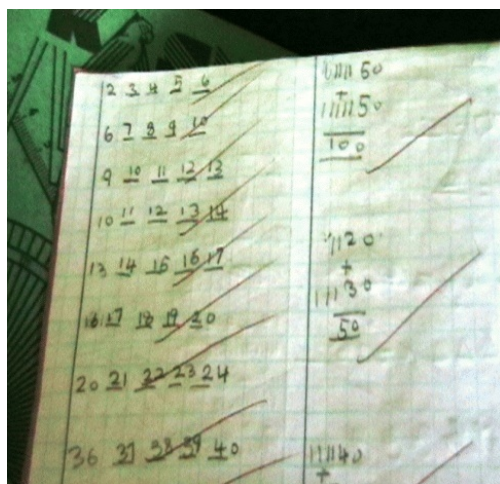 2 3 4 5 6
6 7 8 9 10
9 10 11 12 13
10 11 12 13 14
13 14 15 16 17
16 17 18 19 20
20 21 22 23 24
36 37 38 39 40
50
+
50
100
20
+
30
50
40
+